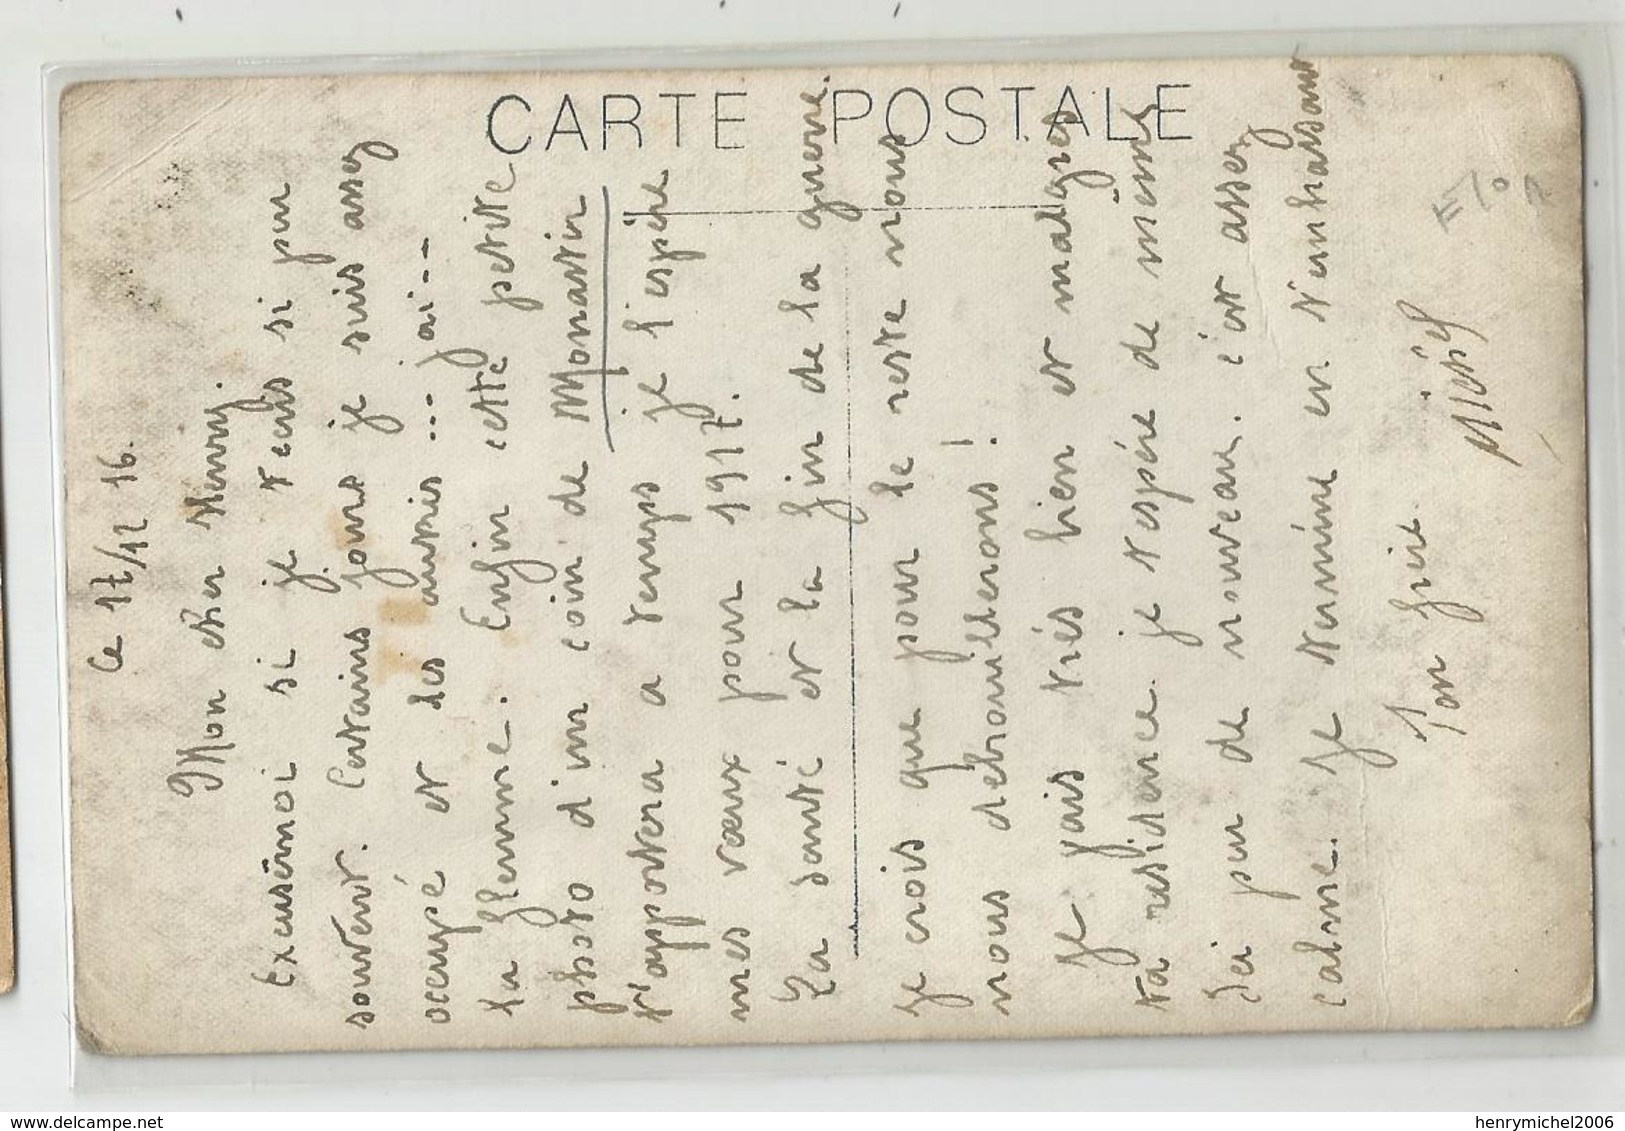 CARTE POSTALE
Ce 17/12 16.
Mon cher Henry.
Excusémoi si je t'ecris si peu
souvent. Certains jours je suis assez
occupé et les autres ... j'ai ...
la flemme. Enfin cette petite
photo d'un coin de Monastir
t'apportera a temps je l'espère
mes vœux pour 1917.
La santé et la fin de la guerre.
Je crois que pour le reste nous
nous débrouillerons !
Je vais très bien et malgres
ta residence je t'espère de meme
Ici peu de nouveau. c'est assez
calme. Je termine en t'embrassant
Ton frère
henrymichel2006